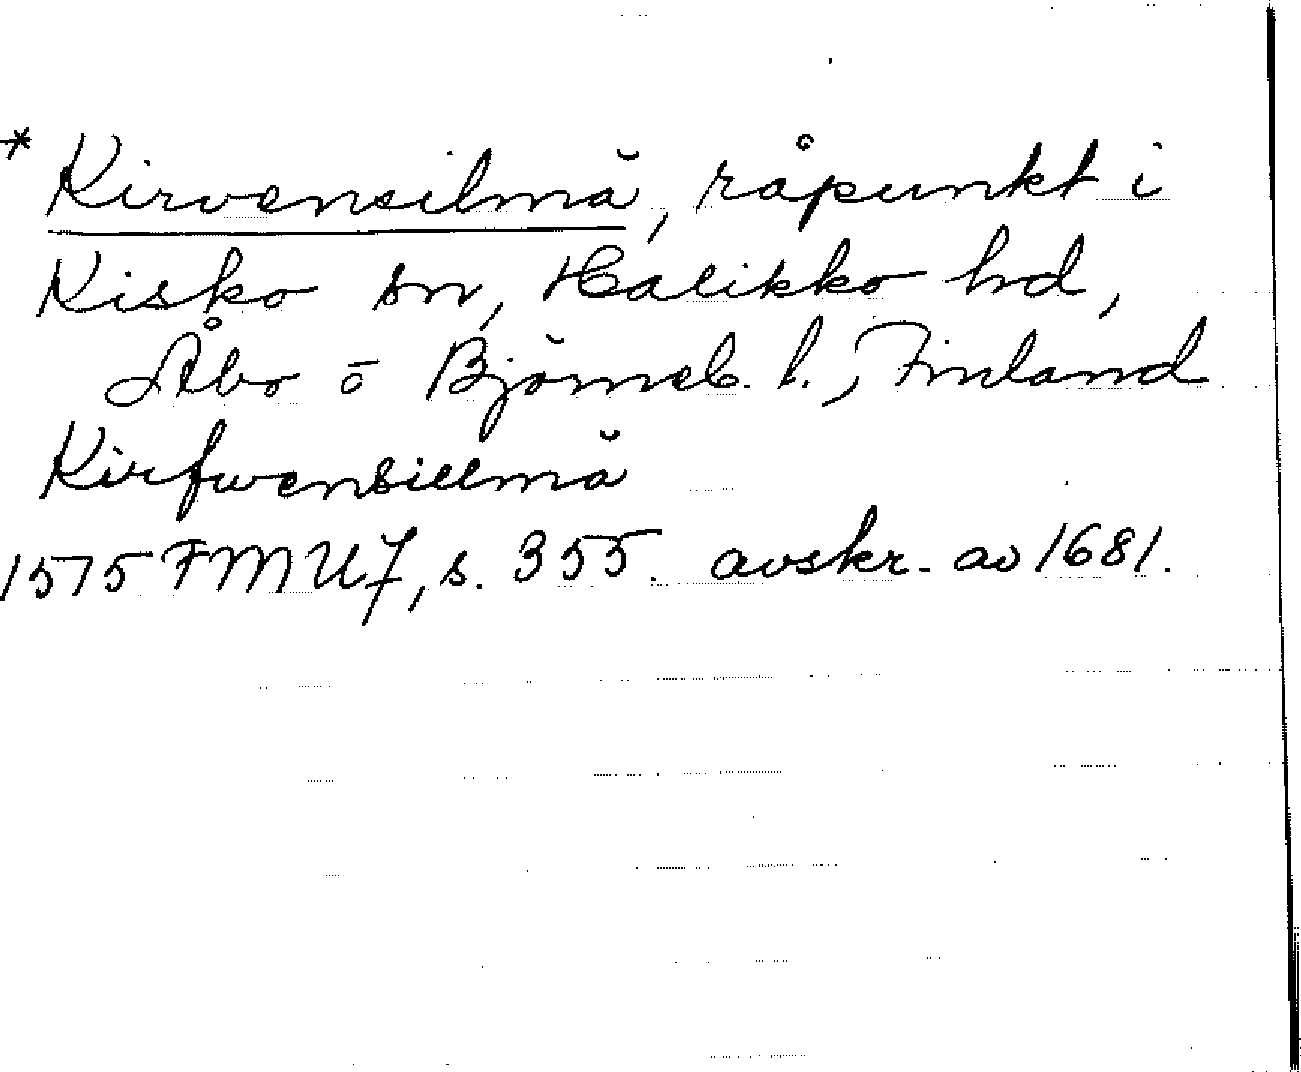 * Kirvensilmä, råpunkt i
Kisko sn, Halikko hd,
Åbo o Björneb. l., Finland
Kirfwensillmä
1575 FMU 7, s. 355. avskr. av 1681.